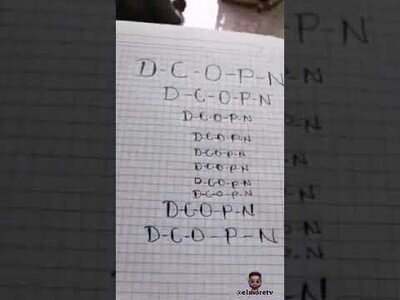 D-C-O-P-N
D-C-O-P-N
D-C-O-P-N
D-C-O-P-N
D-C-O-P-N
D-C-O-P-N
D-C-O-P-N
D-C-O-P-N
D-C-O-P-N
D-C-O-P-N
@elmoretv